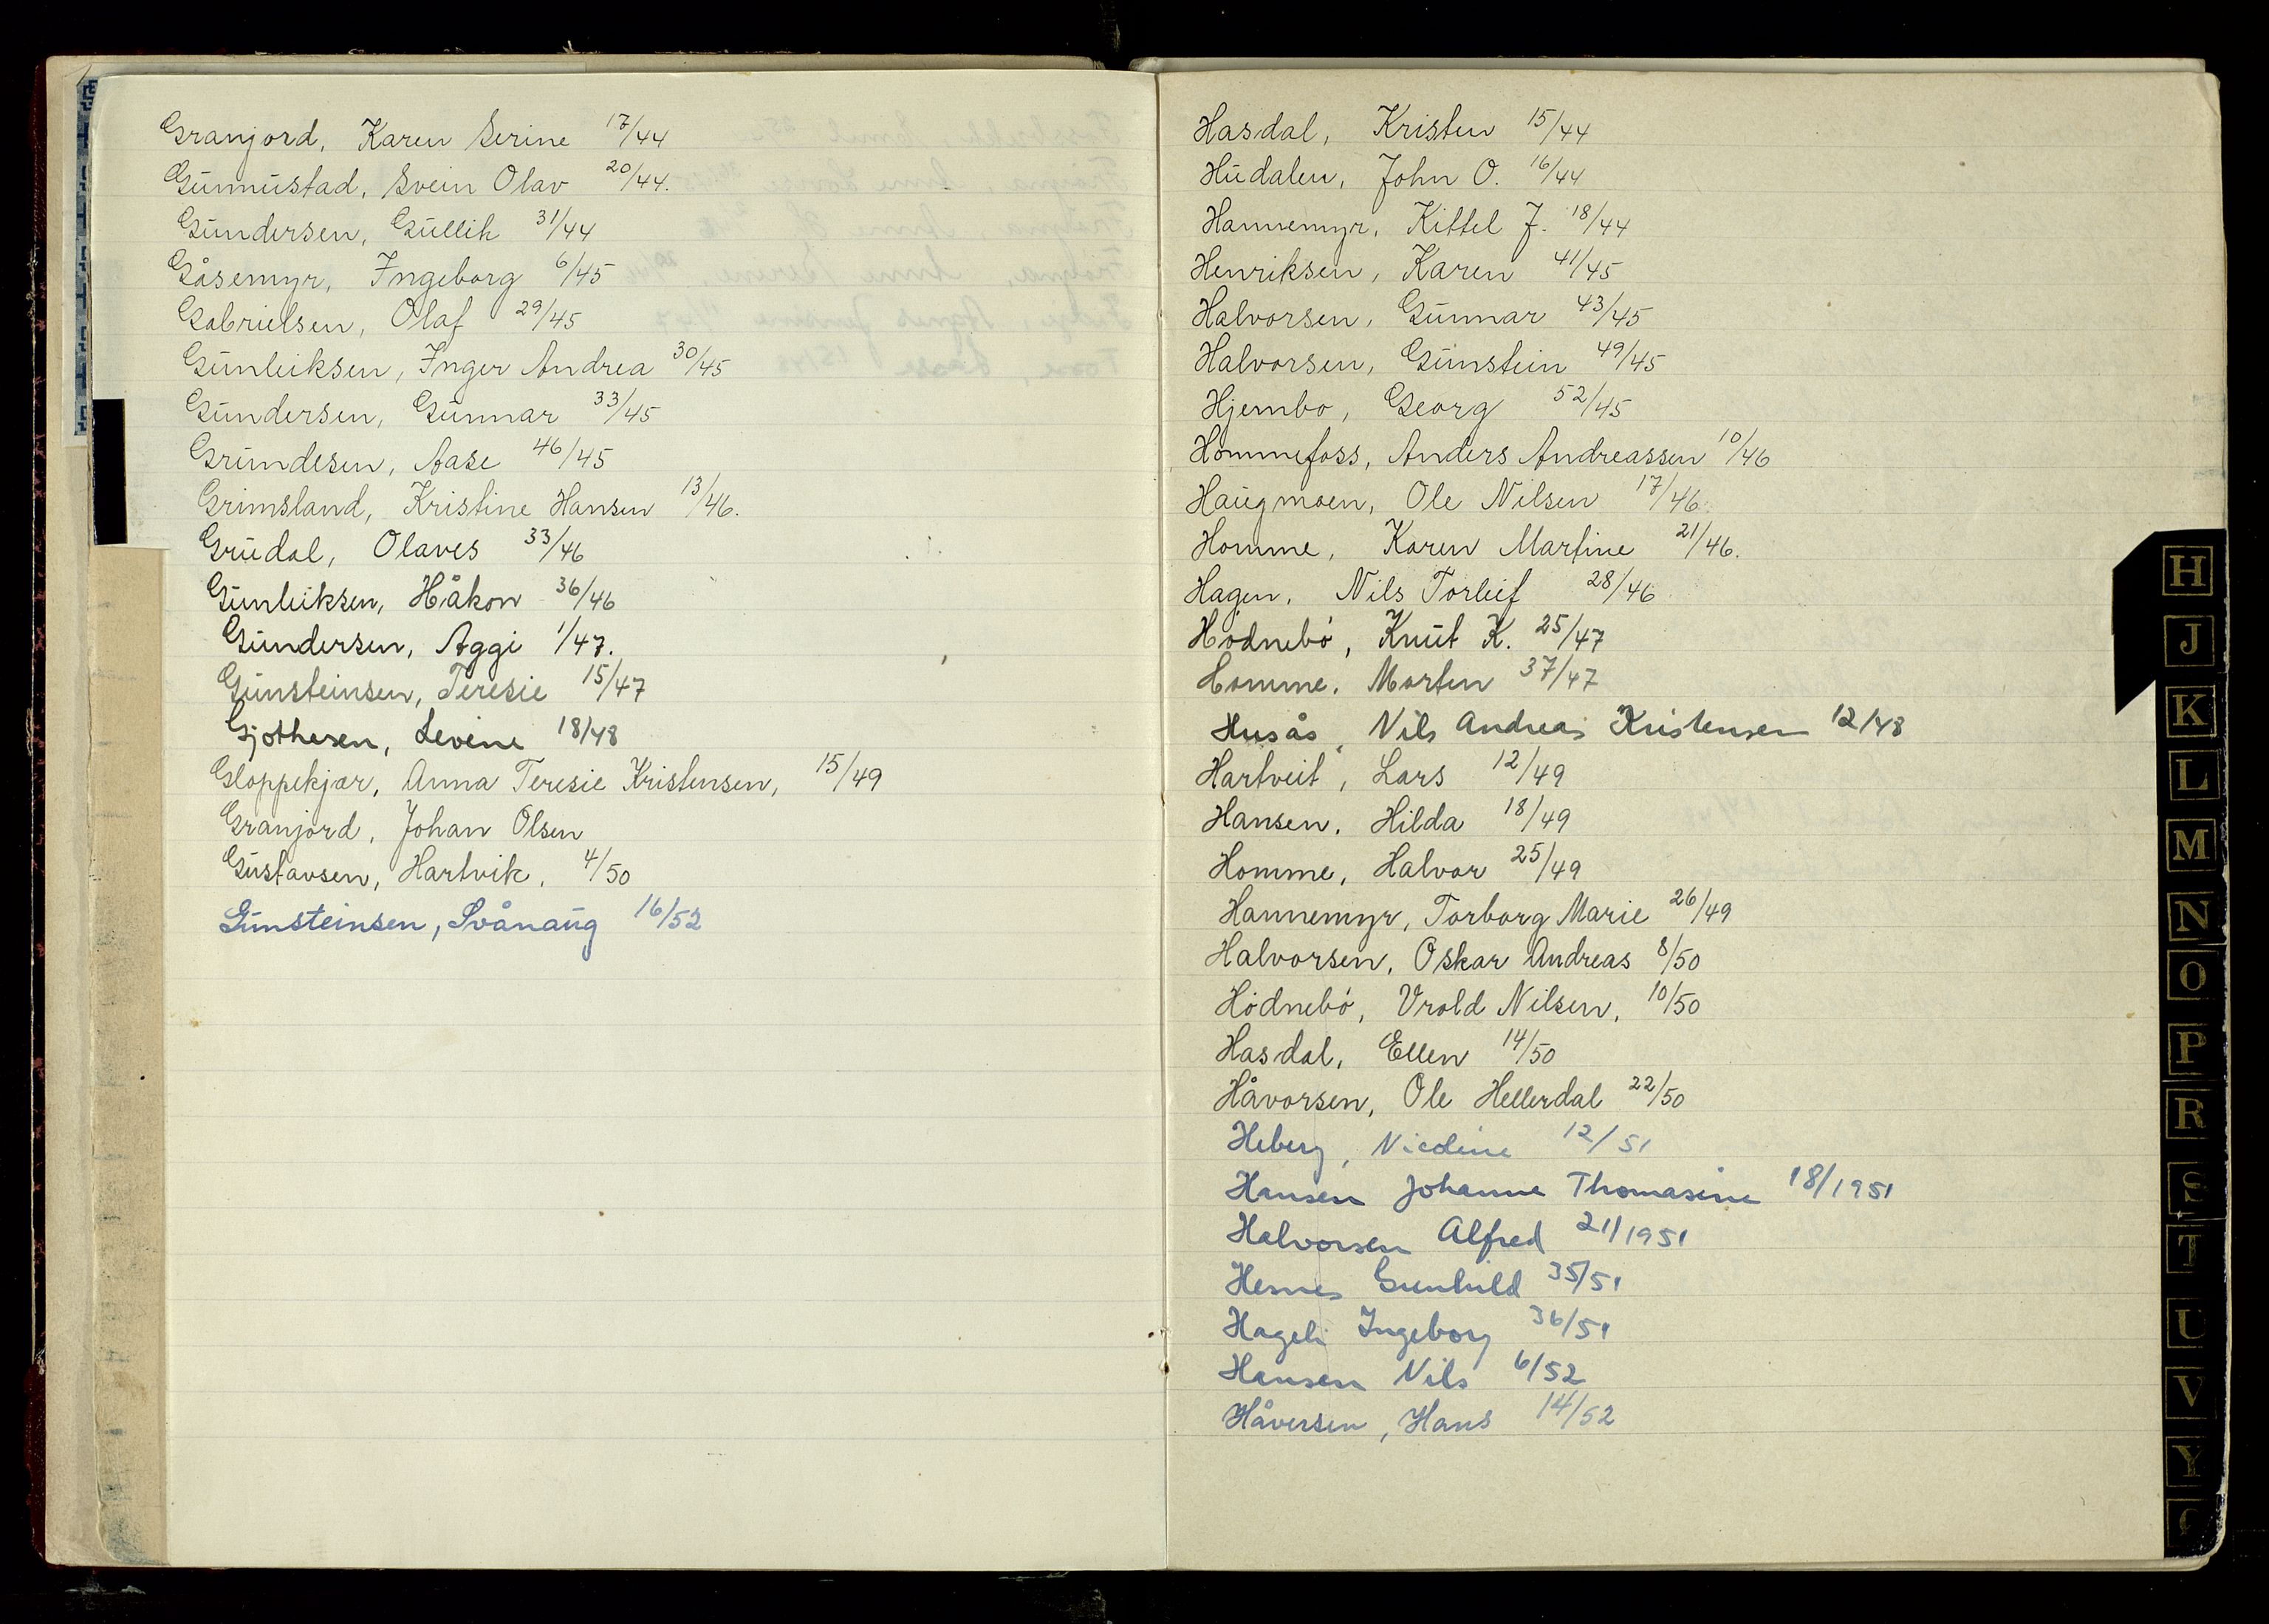 Granjord, Karen Serine 17/44
Gunnustad, Svein Olav 20/44.
Gundersen, Gullik 31/44
Gåsemyr, Ingeborg 6/45
Gabrielsen, Olaf 29/45
Gunleiksen, Inger Andrea 30/45
Gundersen, Gunnar 33/45
Grundesen, Aase 46/45
Grimsland, Kristine Hansen 13/46.
Grudal, Olaves 33/46
Gunleiksen, Håkon 36/46
Gundersen, Aggi 1/47.
Gunsteinsen, Teresie 15/47
Gjothesen, Levine 18/48
Gloppekjær, Anna Teresie Kristensen, 15/49
Granjord, Johan Olsen
Gustavsen, Hartvik, 4/50
Gunsteinsen, Svånaug 16/52
Hasdal, Kristen 15/44
Hudalen, John O. 16/44
Hannemyr, Kittel J. 18/44
Henriksen, Karen 41/45
Halvorsen, Gunnar 43/45
Halvorsen, Gunstein 49/45
Hjembo, Georg 52/45
Hommefoss, Anders Andreassen 10/46
Haugmoen, Ole Nilsen 17/46.
Homme, Karen Martine 21/46.
Hagen, Nils Torleif 28/46
Hødnebø, Knut K. 25/47
Homme, Morten 37/47
Husås, Nils Andreas Kristensen 12/48
Hartveit, Lars 12/49
Hansen, Hilda 18/49
Homme, Halvor 25/49
Hannemyr, Torborg Marie 26/49
Halvorsen, Oskar Andreas 8/50
Hødnebø, Vrold Nilsen, 10/50
Hasdal, Ellen 14/50
Håvorsen, Ole Hellerdal 22/50
Heberg, Nicoline 12/51
Hansen Johanne Thomasine 18/1951
Halvorsen Alfred 21/1951
Hesnes Gunhild 35/51
Hageli Ingeborg 36/51
Hansen Nils 6/52
Håversen, Hans 14/52
H
J
K
L
M
N
O
P
R
S
T
U
V
Y